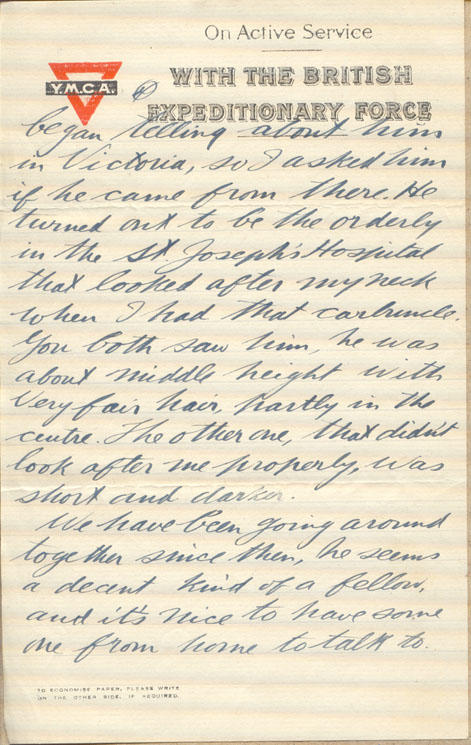 On Active Service
WITH THE BRITISH
Y.M.C.A.
EXPEDITIONARY FORCE
began telling about him
in Victoria, so I asked him
if he came from there. He
turned out to be the orderly
in the St. Joseph's Hospital
that looked after my neck
when I had that carbuncle.
You both saw him, he was
about middle height with
very fair hair, partly in the
centre. The other one, that didn't
look after me properly, was
short and darker.
We have been going around
together since then, he seems
a decent kind of a fellow,
and it's nice to have some
one from home to talk to.
TO ECONOMISE PAPER, PLEASE WRITE
ON THE OTHER SIDE, IF REQUIRED.